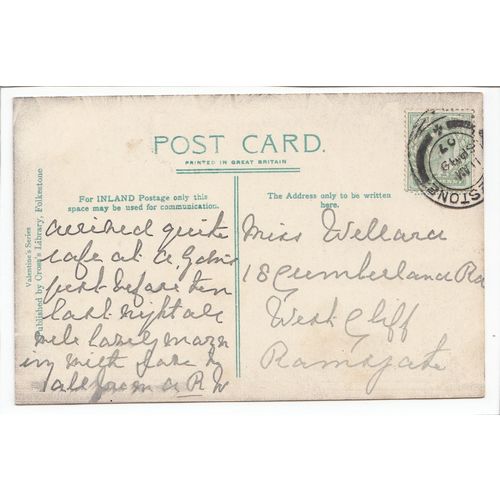 POST CARD.
PRINTED IN GREAT BRITAIN
For INLAND Postage only this
space may be used for communication.
The Address only to be written
here.
Valentine's Series
Published by Cross's Library, Folkestone
arrived quite
safe at
just before ten
last night
lovely morn
ing with love to
all from
Miss Wellard
18 Cumberland Rd
West Cliff
Ramsgate
ESTONE
11 AM
07